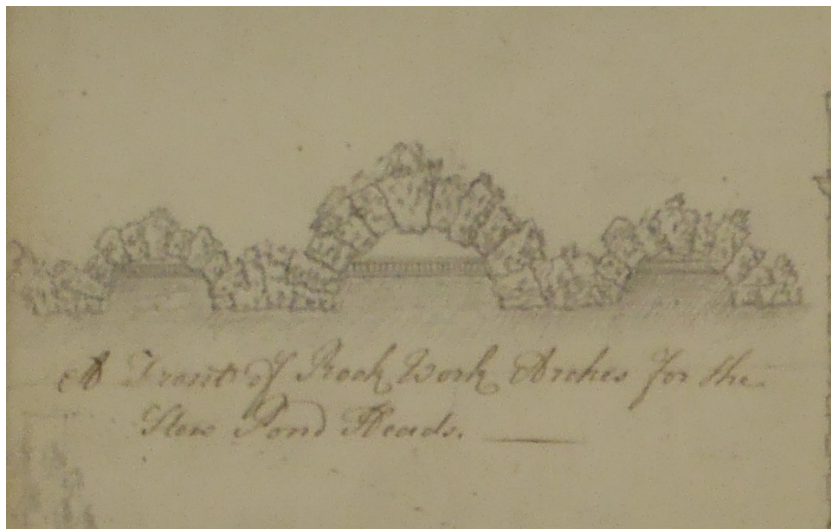 A Front of Rock Work Arches for the
Stew Pond Heads.